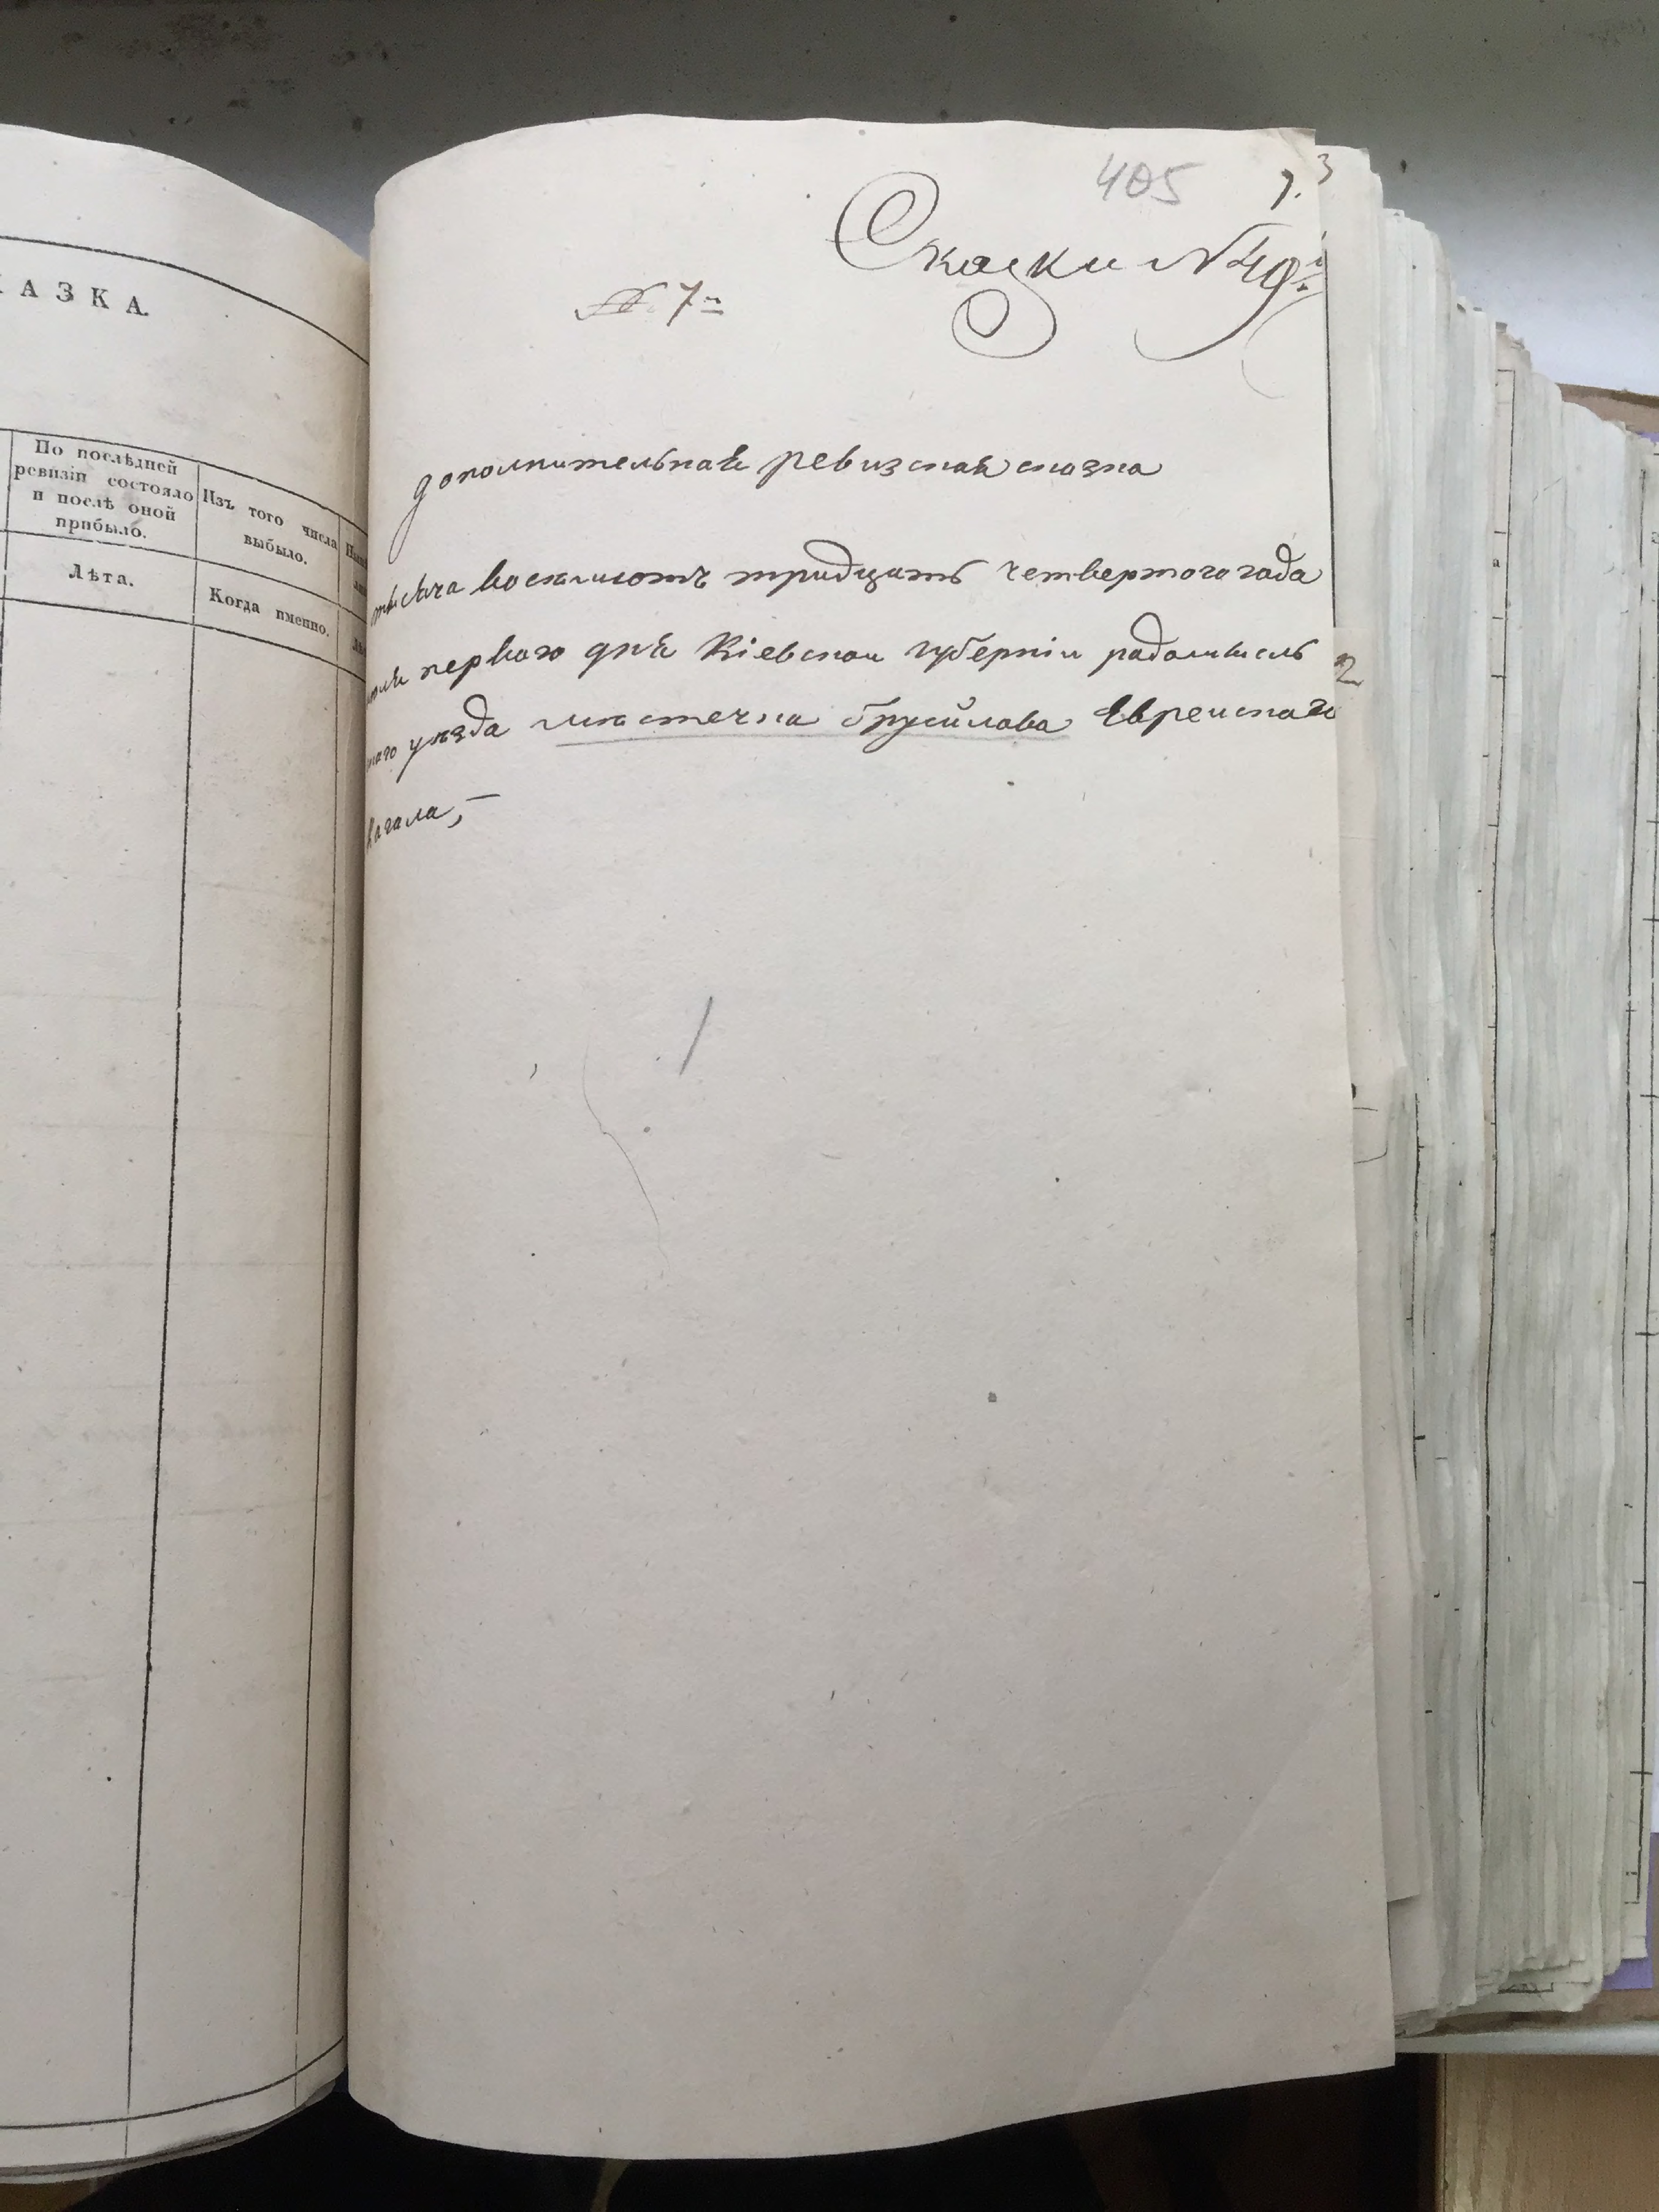 КАЗКА.
По послѣдней
ревизіи состояло
и послѣ оной
прибыло.
Изъ того числа
выбыло.
Лѣта.
Когда именно.
405
7.
3
Скаски №
№ 7й
дополнительная ревизская сказка
тысяча восемьсотъ тридцать четвертого года
первого дня Кіевской губерніи радомысль
2
уѣзда мѣстечка брусилова Евреискаго
кагала,